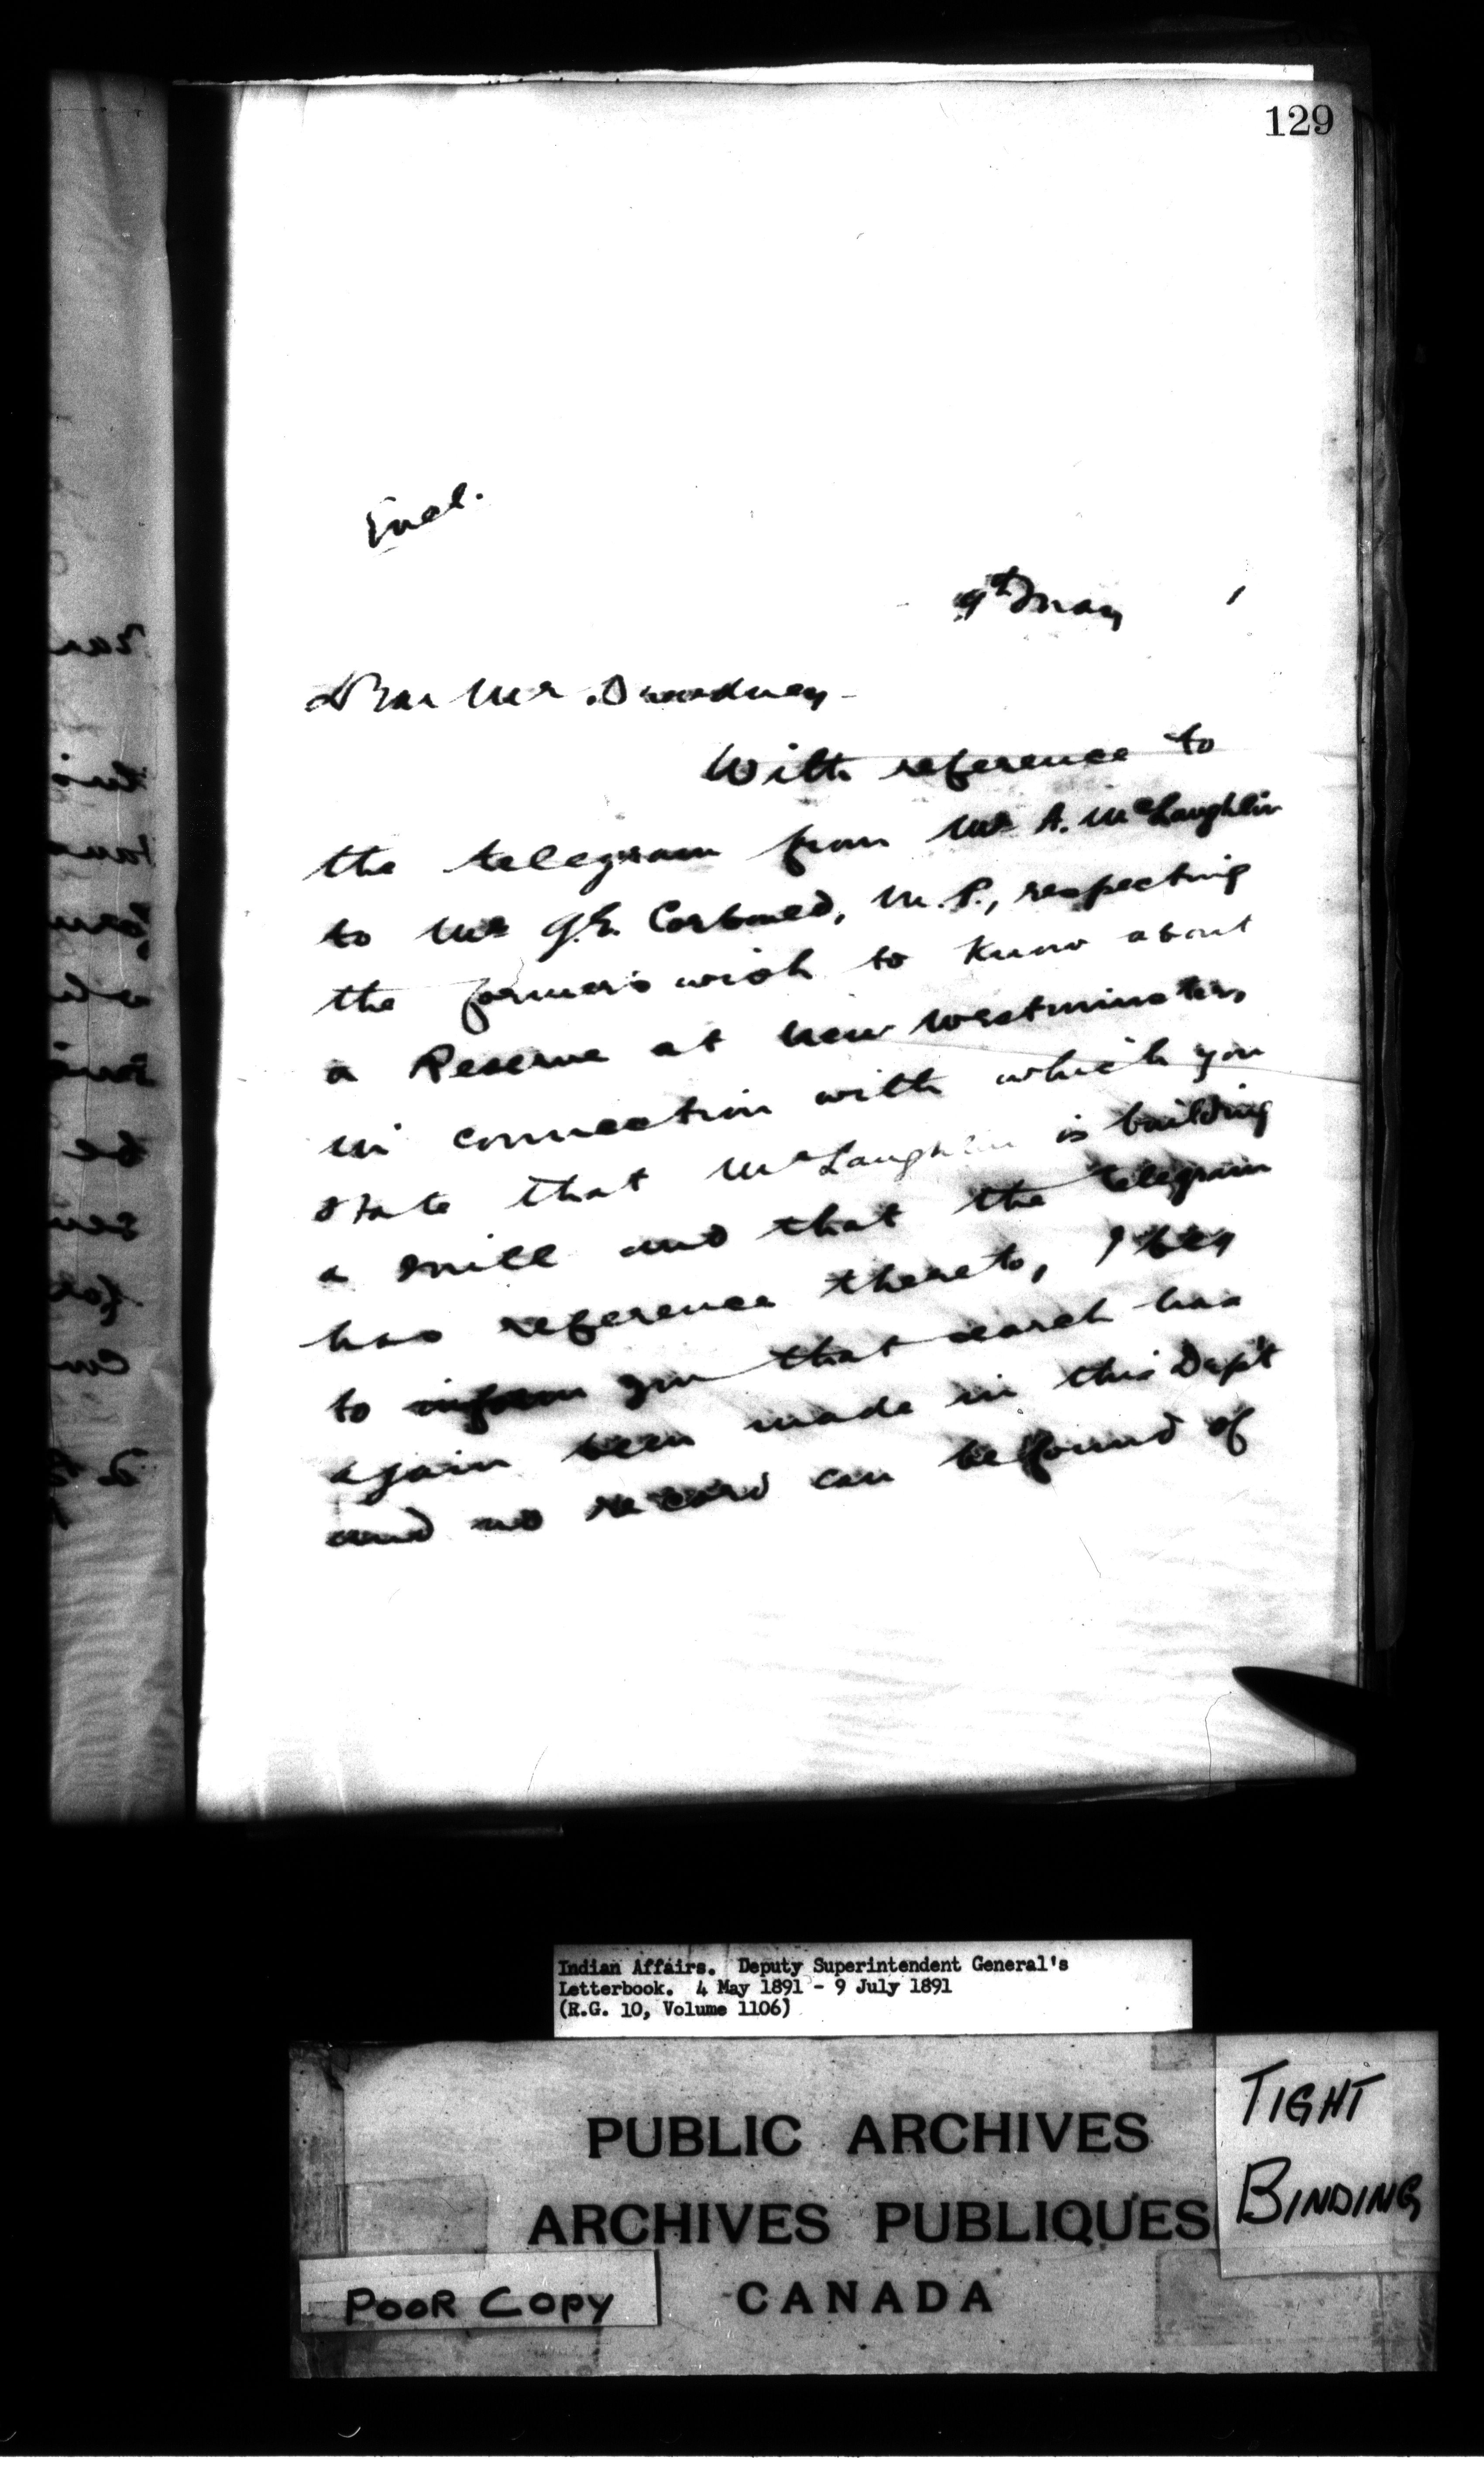 129
Encl.
9th May 1
Dear Mr. Dewdney -
With reference to
the telegram from Mr A. McLaughlin
to Mr G.E. Corbould, M.P., respecting
the former's wish to know about
a Reserve at New Westminster,
in connection with which you
state that Mr Laughlin is building
a mill and that the telegram
has reference thereto, I beg
to inform you that search has
again been made in this Dep't
and no record can be found of
Indian Affairs. Deputy Superintendent General's
Letterbook. 4 May 1891 - 9 July 1891
(R.G. 10, Volume 1106)
PUBLIC ARCHIVES
ARCHIVES PUBLIQUES
CANADA
TIGHT
BINDING
POOR COPY